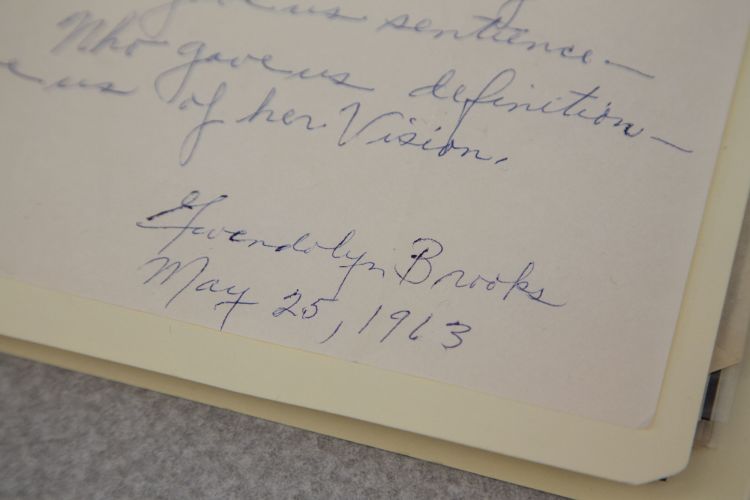 us sentience—
Who gave us definition—
us of her Vision.
Gwendolyn Brooks
May 25, 1963